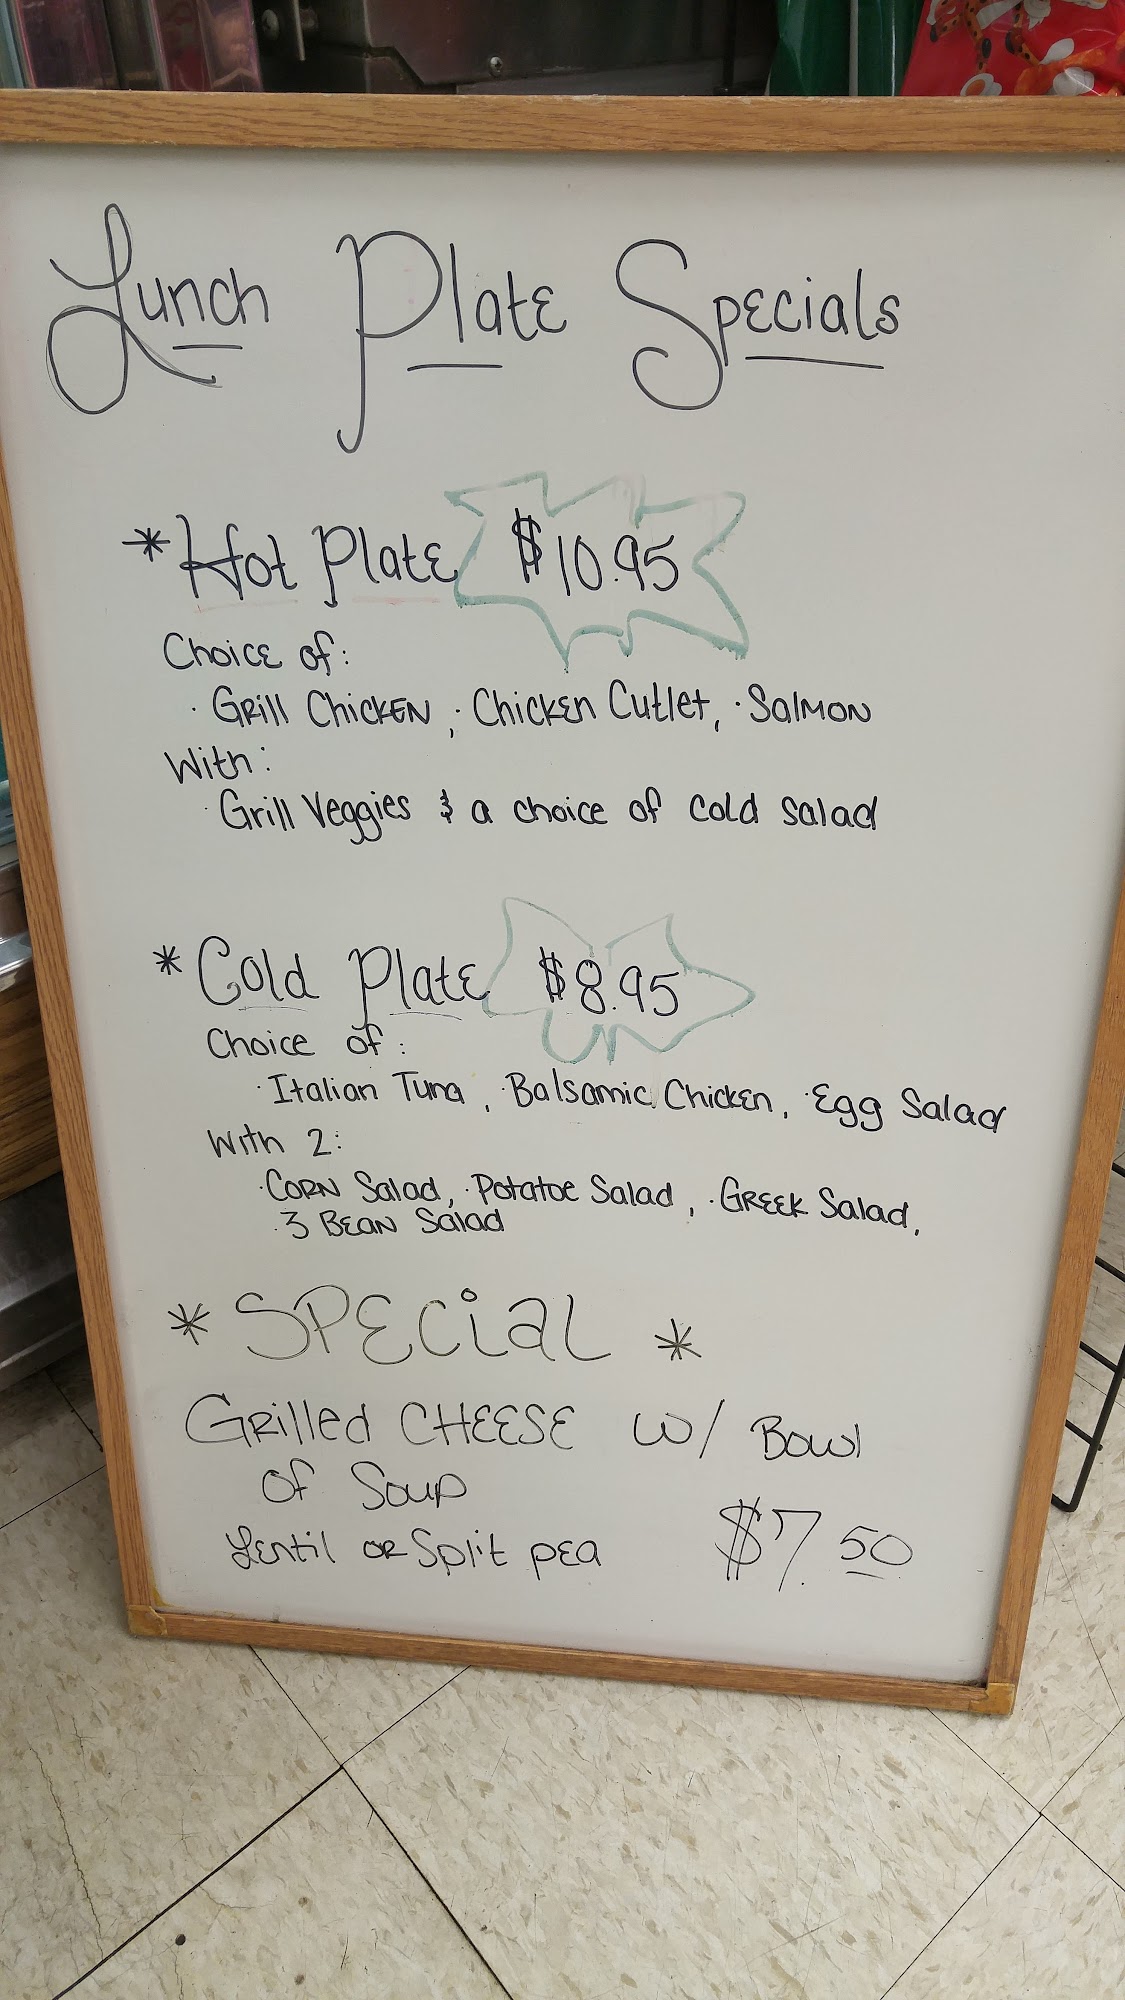 Lunch Plate Specials
* Hot Plate $10.95
Choice of:
· Grill Chicken, · Chicken Cutlet, · Salmon
With:
· Grill Veggies & a choice of cold salad
* Cold Plate $8.95
Choice of:
· Italian Tuna, · Balsamic Chicken, · Egg Salad
With 2:
· Corn Salad, · Potatoe Salad, · Greek Salad,
· 3 Bean Salad
* SPECiaL *
Grilled CHEESE w/ Bowl
of Soup
Lentil or Split pea $7.50